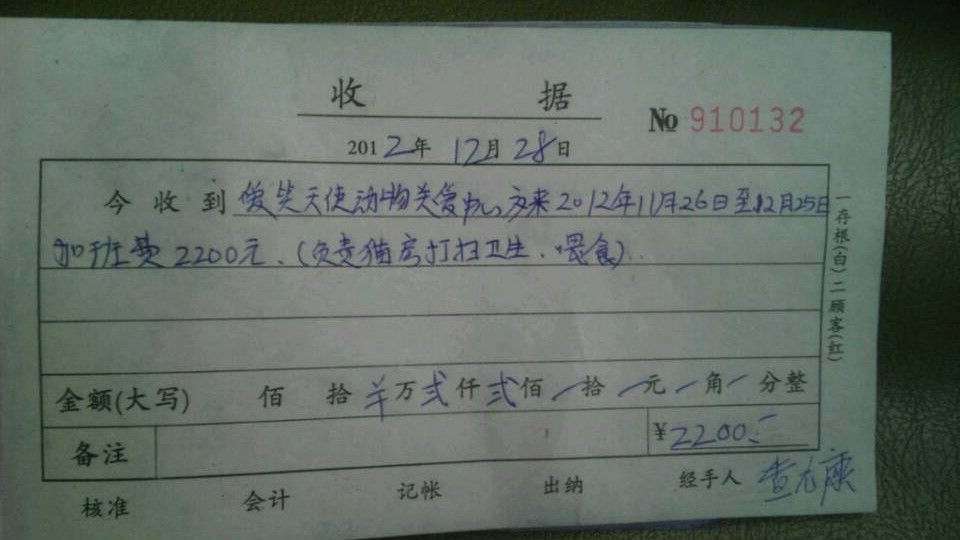 收 据
No 910132
2012年 12月 28日
今 收 到 爱笑天使动物关爱中心 2012年11月26日至12月25日
加班费 2200元.(负责猫房打扫卫生.喂食)
金额(大写) 佰 拾 万 贰 仟 贰 佰 一 拾 一 元 一 角 一 分整
备注 ¥2200.-
核准 会计 记帐 出纳 经手人
一存根(白)二顾客(红)